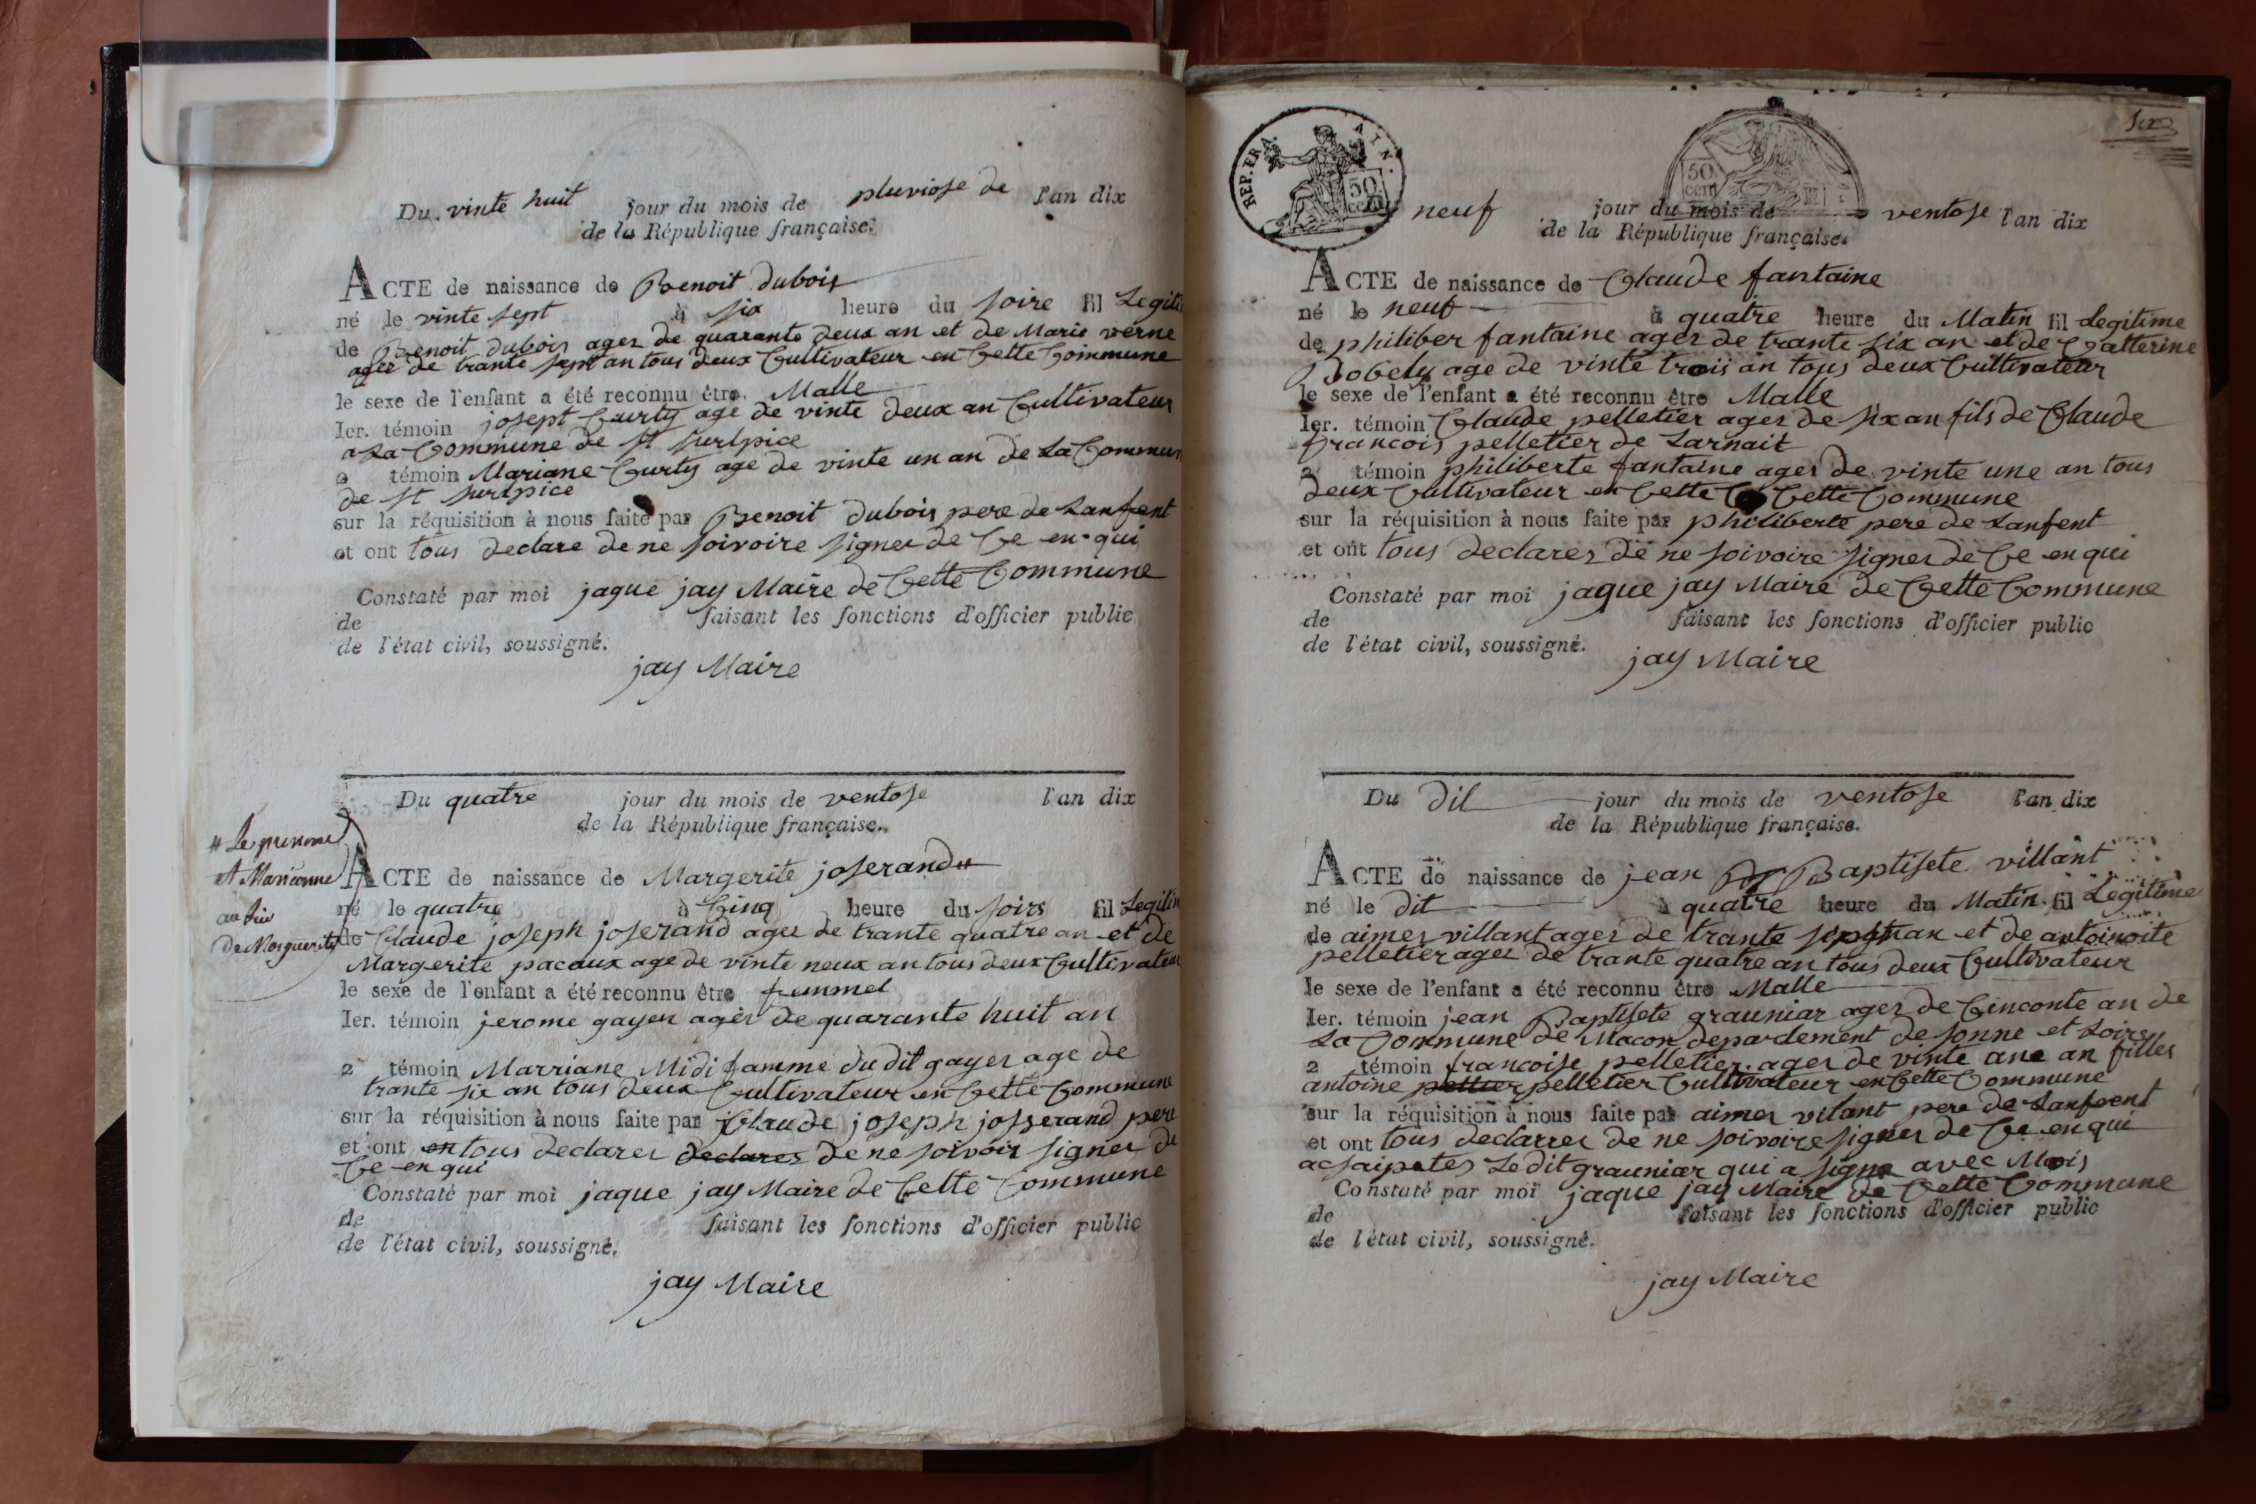 Du vinte huit jour du mois de pluviose de l'an dix
de la République française.
ACTE de naissance de Benoit dubois
né le vinte sept à six heure du soire fil Legiti
de Benoit dubois ager de quarante deux an et de Marie verne
agée de trante sept an tous deux Cultivateur en Cette Commune
le sexe de l'enfant a été reconnu être Malle
Ier. témoin josept Curty age de vinte deux an Cultivateur
a La Commune de St Surlpice
2 témoin Mariane Curty age de vinte un an de La Commun
de St Surlpice
sur la réquisition à nous faite par Benoit dubois pere de Lanfent
et ont tous declare de ne soivoire signer de Ce en qui
Constaté par moi jaque jay Maire de Cette Commune
de faisant les fonctions d'officier public
de l'état civil, soussigné.
jay Maire
Du quatre jour du mois de ventose l'an dix
de la République française.
# Le prenome
et Marianne
au lieu
de Marguerite
ACTE de naissance de Margerite joserand #
né le quatre à Cinq heure du soirs fil Legitim
de Claude joseph joserand ager de trante quatre an et de
Margerite pacaux age de vinte neux an tous deux Cultivateur
le sexe de l'enfant a été reconnu être femmel
Ier. témoin jerome gayer ager de quarante huit an
2 témoin Marriane Midi famme du dit gayer age de
trante six an tous deux Cultivateur en Cette Commune
sur la réquisition à nous faite par Claude joseph josserand pere
et ont en tous declarer declares de ne soivoir signer de
Ce en qui
Constaté par moi jaque jay Maire de Cette Commune
de faisant les fonctions d'officier public
de l'état civil, soussigné.
jay Maire
REP. FRA. AIN.
50 cent
50 cent
neuf jour du mois de ventose l'an dix
de la République française.
ACTE de naissance de Claude fantaine
né le neuf à quatre heure du Matin fil Legitime
de philiber fantaine ager de trante six an et de Catterine
Bobely age de vinte trois an tous deux Cultivateur
le sexe de l'enfant a été reconnu être Malle
Ier. témoin Claude pelletier ager de six an fils de Claude
francois pelletier de Larnait
2 témoin philiberte fantaine ager de vinte une an tous
deux Cultivateur en Cette Cette Commune
sur la réquisition à nous faite par philiberte pere de Lanfent
et ont tous declarer de ne soivoire signer de Ce en qui
Constaté par moi jaque jay Maire de Cette Commune
de faisant les fonctions d'officier public
de l'état civil, soussigné.
jay Maire
Du dit jour du mois de ventose l'an dix
de la République française.
ACTE de naissance de jean Baptisete villant
né le dit à quatre heure du Matin fil Legitime
de aimer villant ager de trante sept an et de antoinoite
pelletier ager de trante quatre an tous deux Cultivateur
le sexe de l'enfant a été reconnu être Malle
Ier. témoin jean Baptisete grauniar ager de Cinconte an de
La Commune de Macon depardement de sonne et Loire
2 témoin francoise pelletier ager de vinte une an filles
antoine peltier pelletier Cultivateur en Cette Commune
sur la réquisition à nous faite par aimer vilant pere de Lanfeent
et ont tous declarrer de ne soivoire signer de Ce en qui
acsaipetes Le dit grauniar qui a signe avec Mois
Constaté par moi jaque jay Maire de Cette Commune
de faisant les fonctions d'officier public
de l'état civil, soussigné.
jay Maire